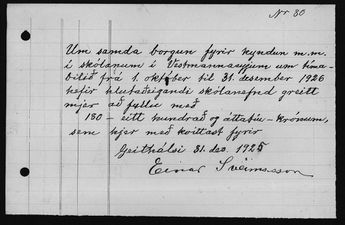 Nr 80
Um samda borgun fyrir kyndun m.m.
í skólanum í Vestmannaeyjum um tíma-
bilið frá 1. október til 31. desember 1926
hefir hlutaðeigandi skólanefnd greitt
mjer að fullu með
180 – eitt hundrað og áttatíu – krónum,
sem hjer með kvittast fyrir
Geithálsi 31. des. 1925
Einar Sveinsson